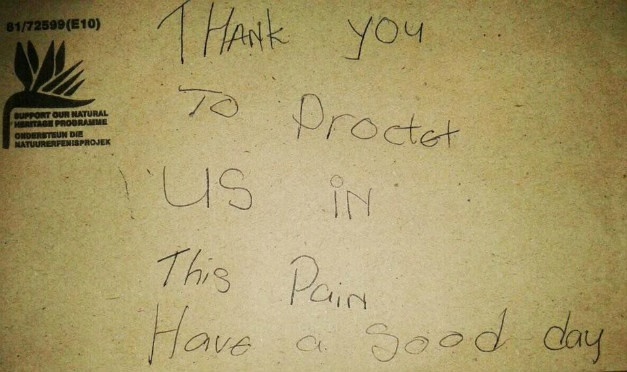 81/72599(E10)
SUPPORT OUR NATURAL
HERITAGE PROGRAMME
ONDERSTEUN DIE
NATUURERFENISPROJEK
THANK you
To Proctet
US iN
This Pain
Have a good day